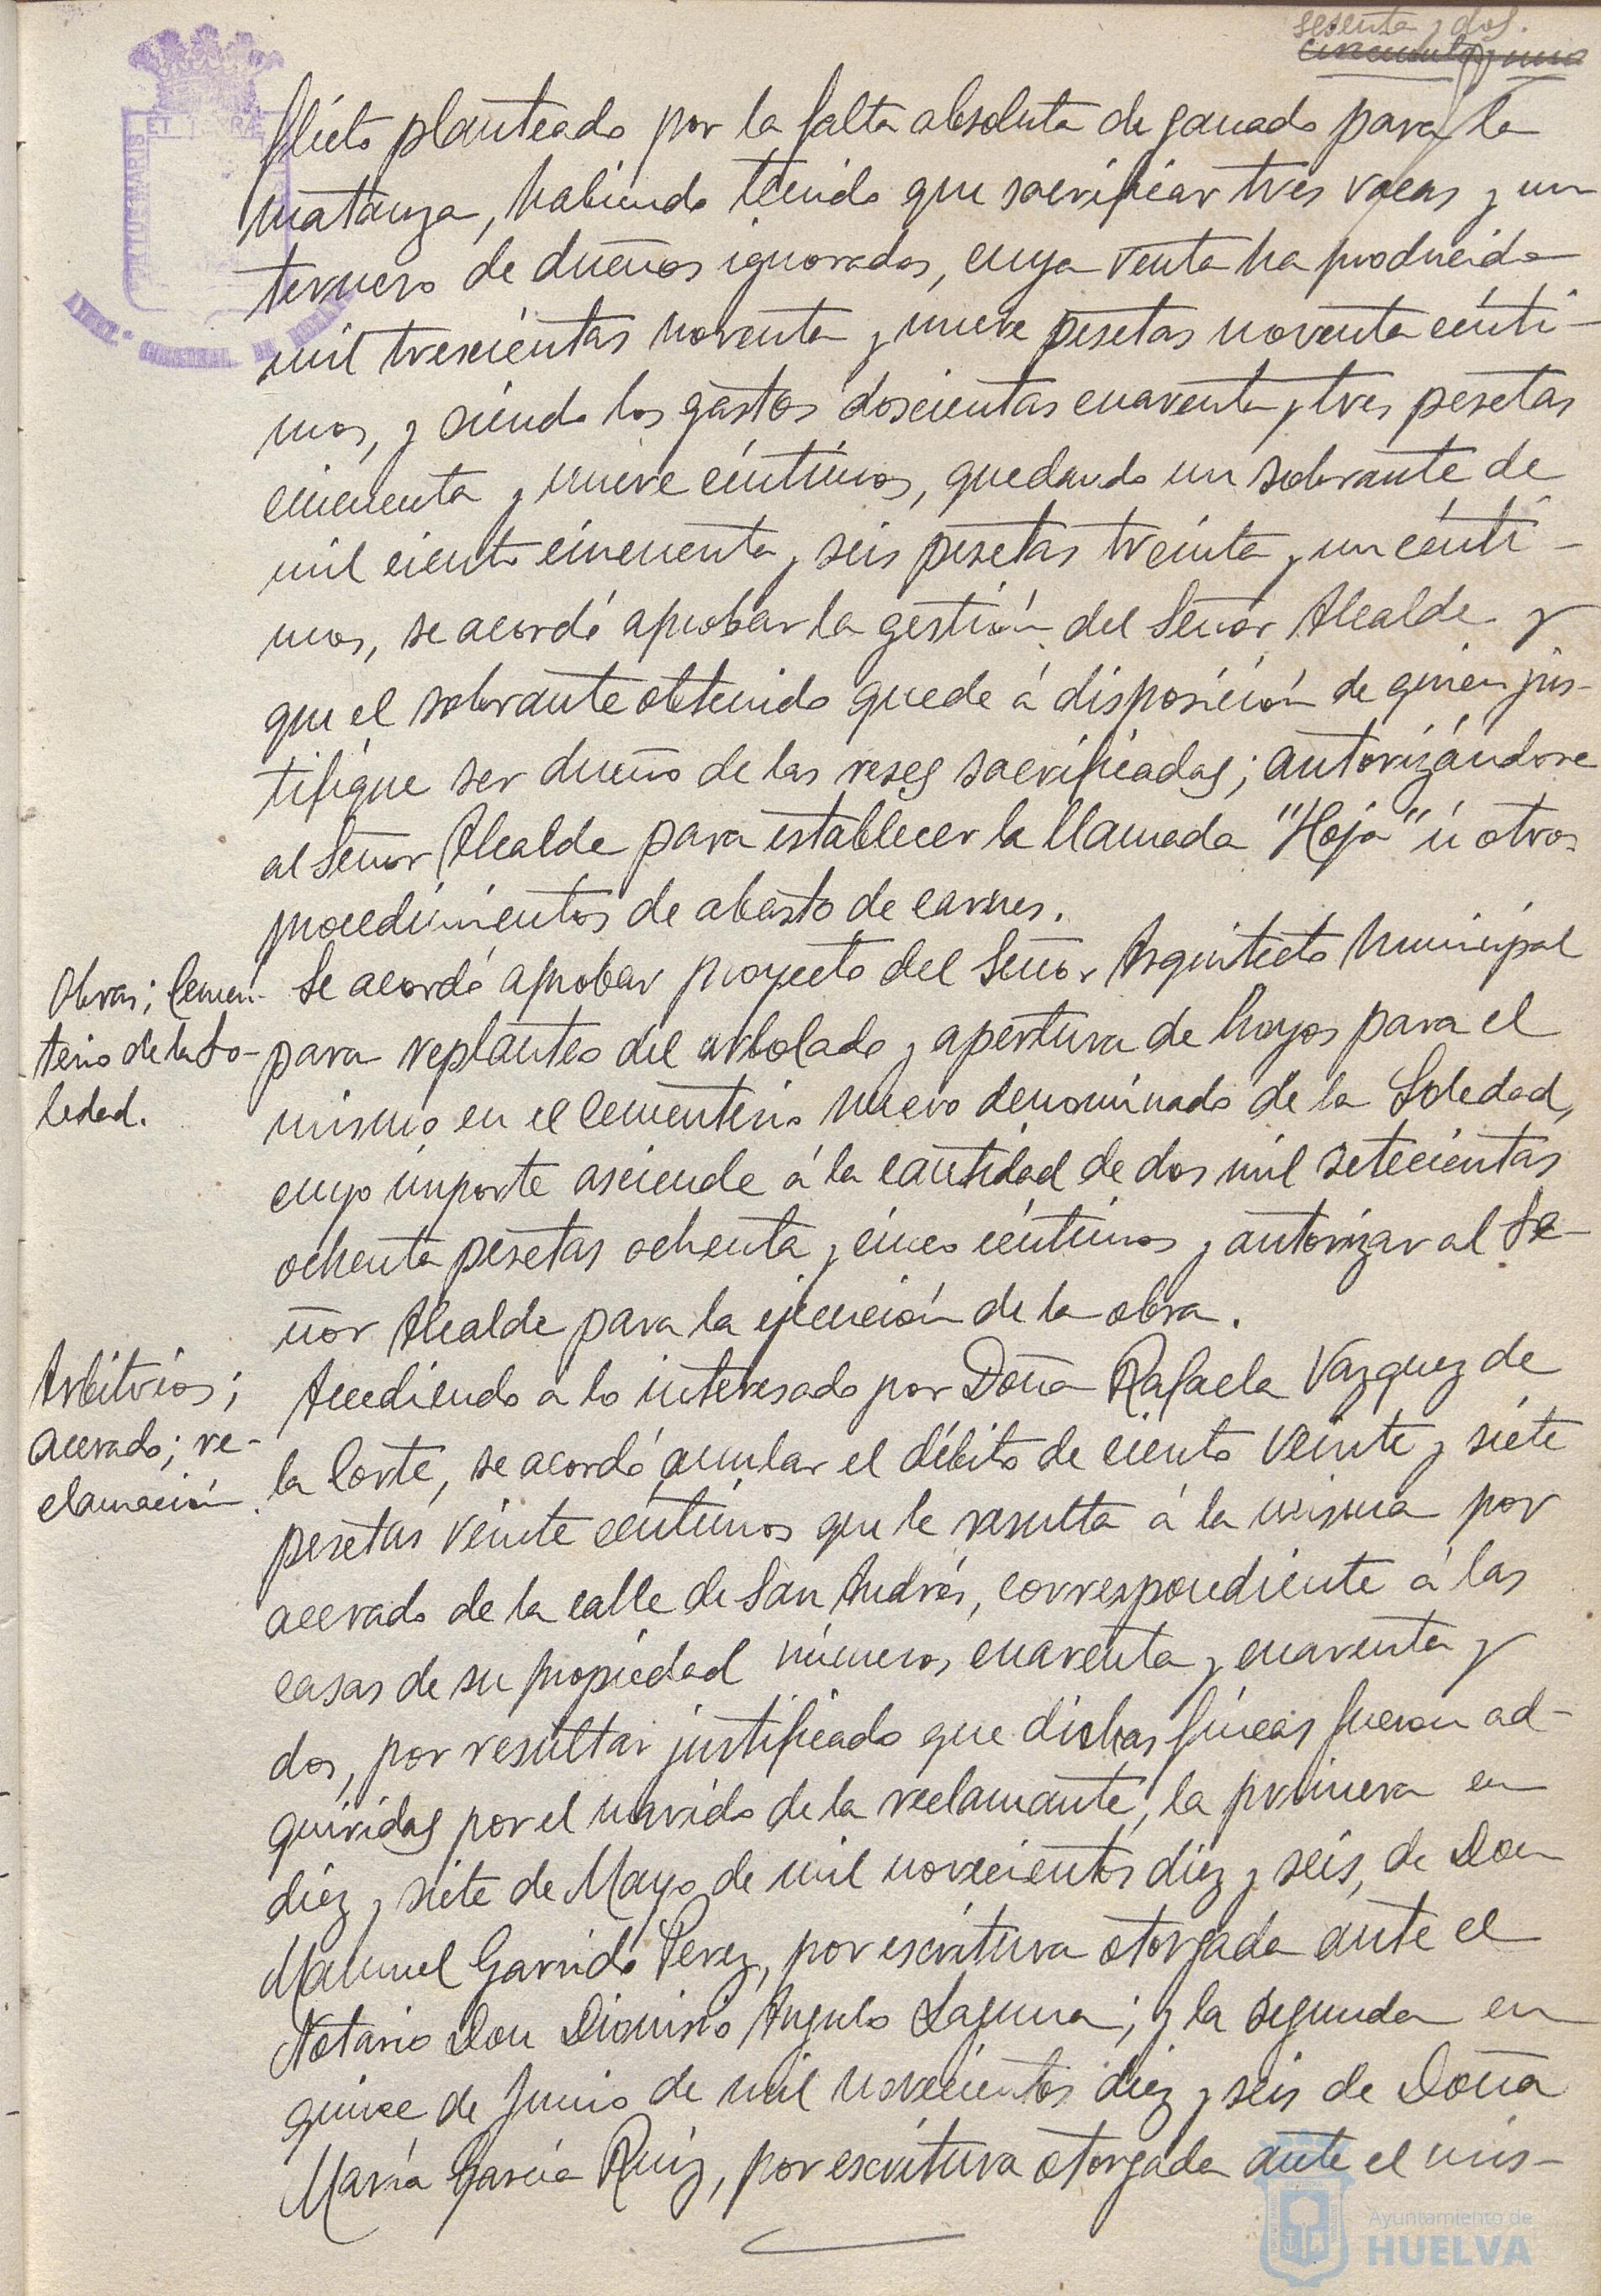 sesenta y dos.
cincuenta y uno
flicto planteado por la falta absoluta de ganado para la
matanza, habiendo tenido que sacrificar tres vacas y un
ternero de dueños ignorados, cuya venta ha producido
mil trescientas noventa y nueve pesetas noventa cénti-
mos, y siendo los gastos doscientas cuarenta y tres pesetas
cincuenta y nueve céntimos, quedando un sobrante de
mil ciento cincuenta y seis pesetas treinta y un cénti-
mos, se acordó aprobar la gestión del Señor Alcalde y
que el sobrante obtenido quede á disposición de quien jus-
tifique ser dueño de las reses sacrificadas; autorizándose
al Señor Alcalde para establecer la llamada "Hoja" ú otros
procedimientos de abasto de carnes.
Obras; Cemen-
terio de la So-
ledad.
Se acordó aprobar proyecto del Señor Arquitecto Municipal
para replanteo del arbolado y apertura de hoyos para el
mismo en el Cementerio nuevo denominado de la Soledad,
cuyo importe asciende á la cantidad de dos mil setecientas
ochenta pesetas ochenta y cinco céntimos y autorizar al Se-
ñor Alcalde para la ejecución de la obra.
Arbitrios;
acerado; re-
clamación
Accediendo a lo interesado por Doña Rafaela Vazquez de
la Corte, se acordó anular el débito de ciento veinte y siete
pesetas veinte céntimos que le resulta á la misma por
acerado de la calle de San Andrés, correspondiente á las
casas de su propiedad números cuarenta y cuarenta y
dos, por resultar justificado que dichas fincas fueron ad-
quiridas por el marido de la reclamante, la primera en
diez y siete de Mayo de mil novecientos diez y seis, de Don
Manuel Garrido Perez, por escritura otorgada ante el
Notario Don Dionisio Angulo Laguna; y la segunda en
quince de Junio de mil novecientos diez y seis de Doña
María García Ruiz, por escritura otorgada ante el mis-
Ayuntamiento de
HUELVA